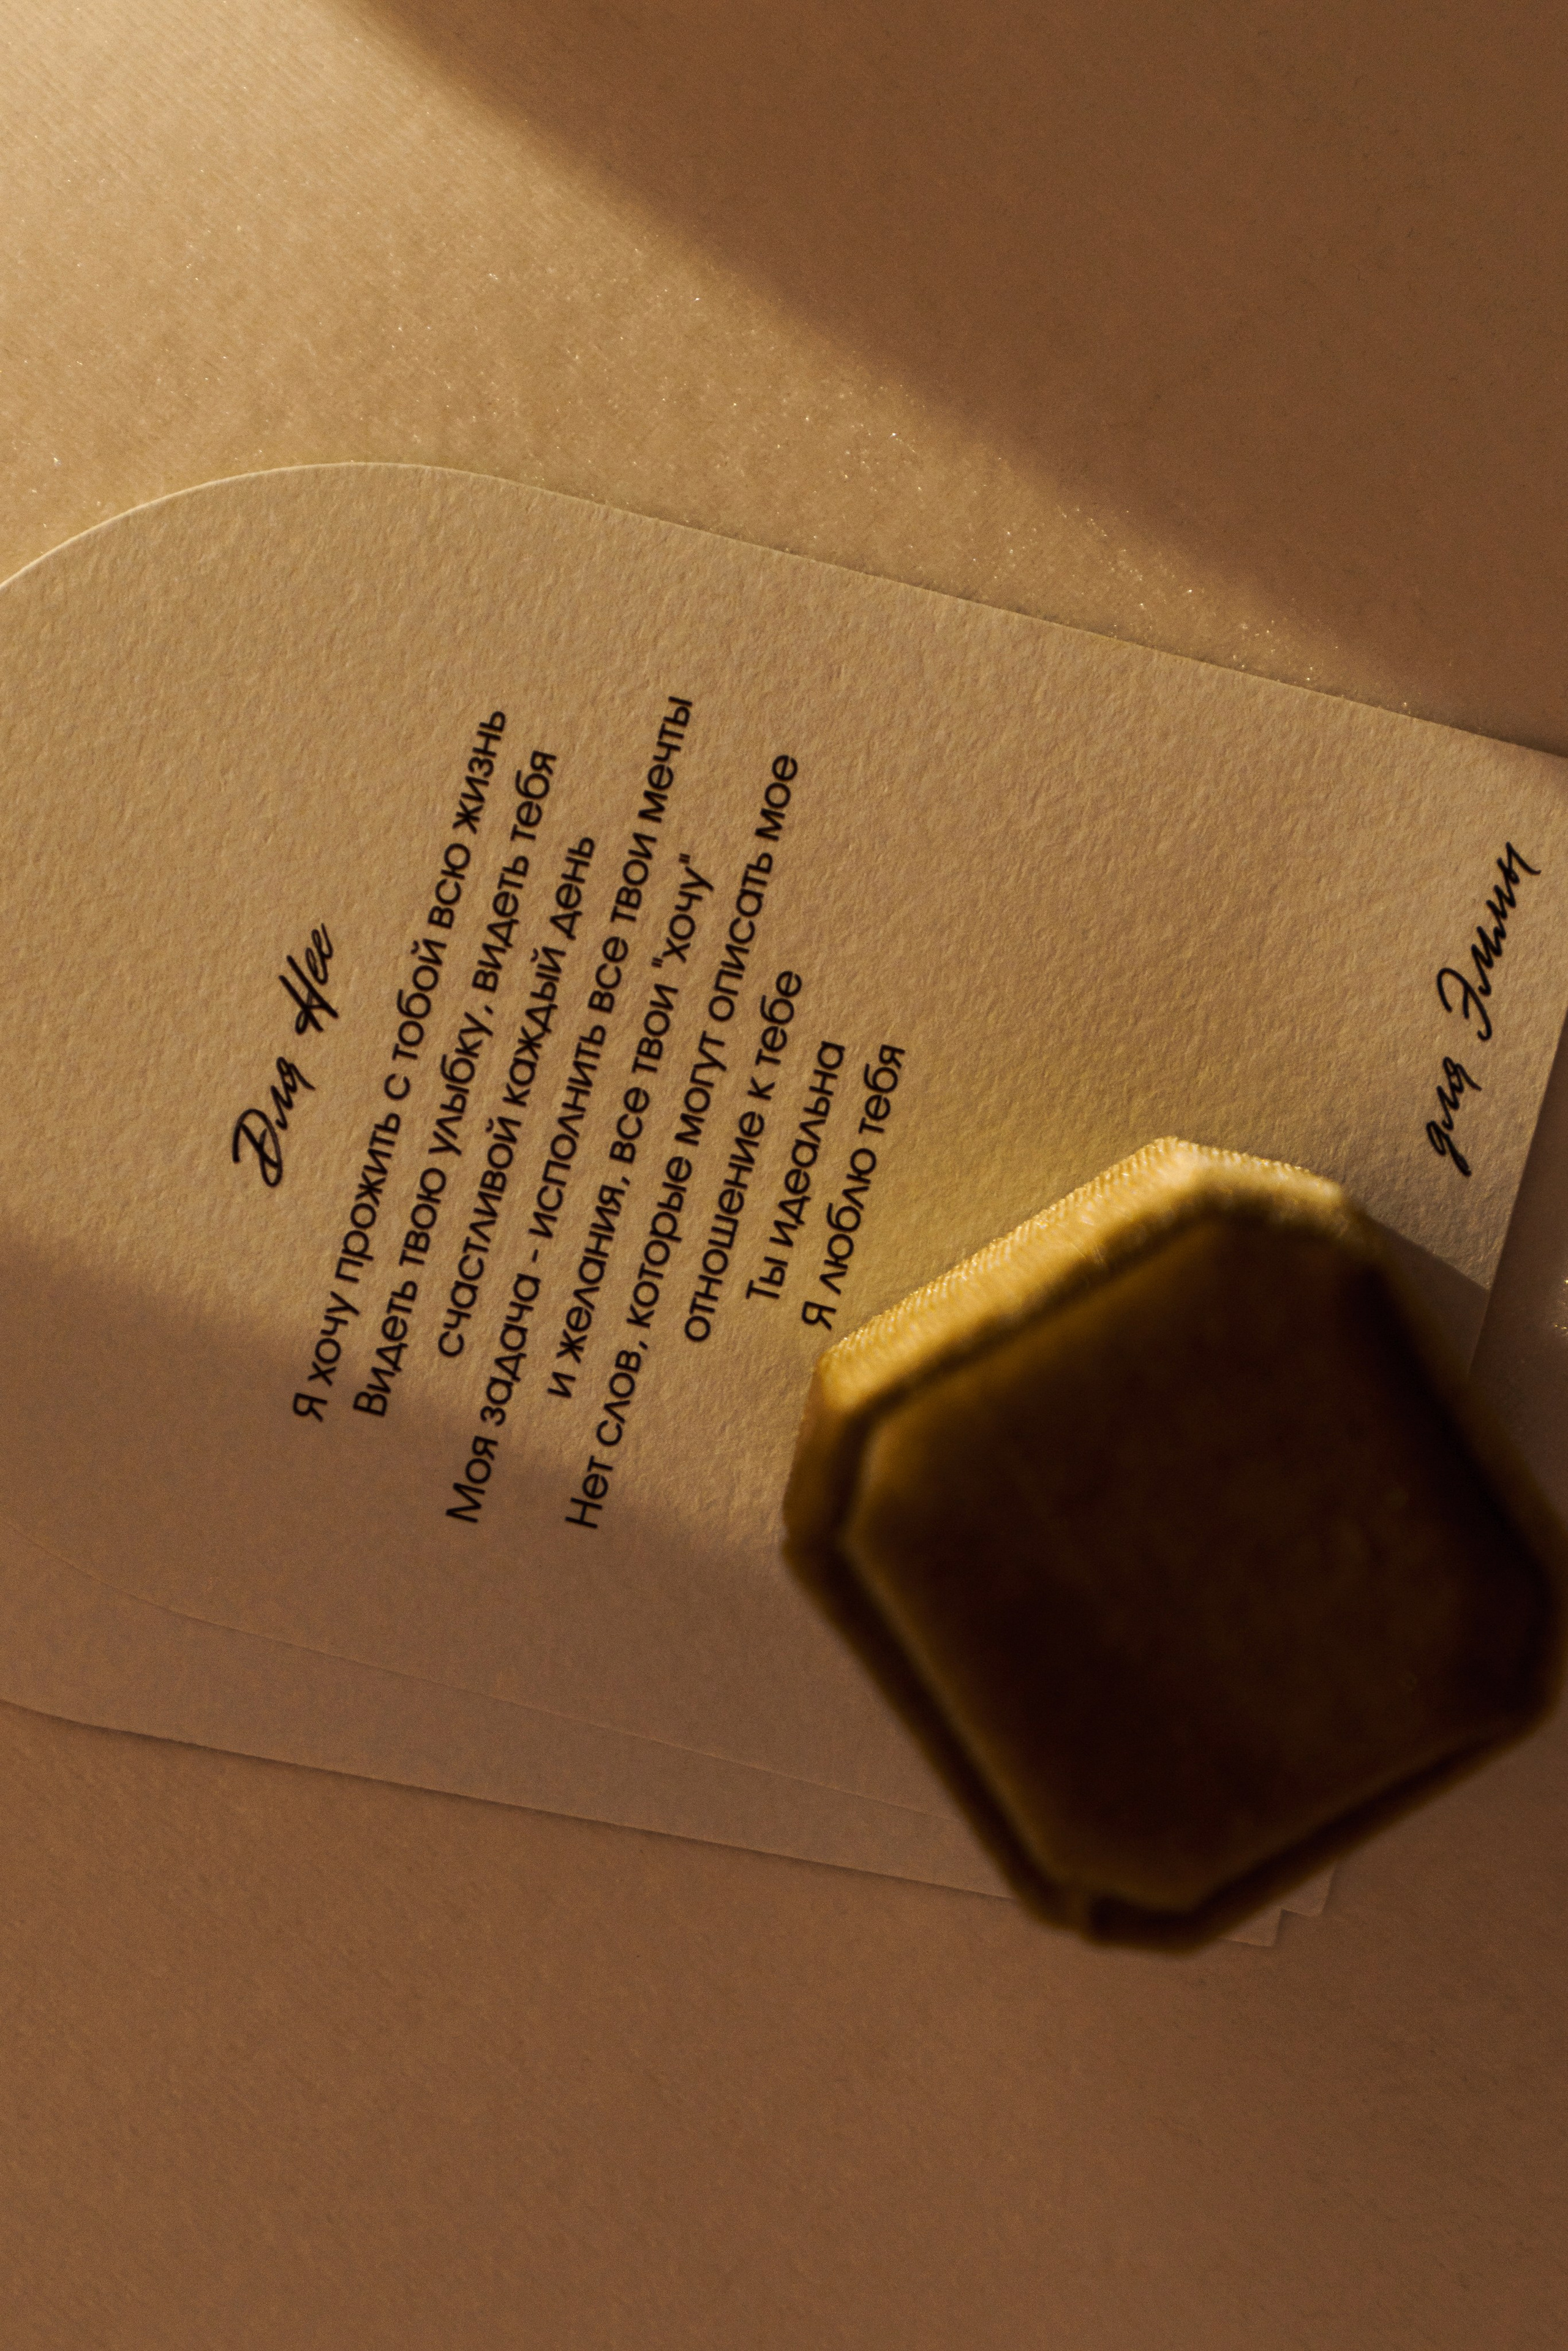 Для Нее
Я хочу прожить с тобой всю жизнь
Видеть твою улыбку, видеть тебя
счастливой каждый день
Моя задача - исполнить все твои мечты
и желания, все твои "хочу"
Нет слов, которые могут описать мое
отношение к тебе
Ты идеальна
Я люблю тебя
для Эммы